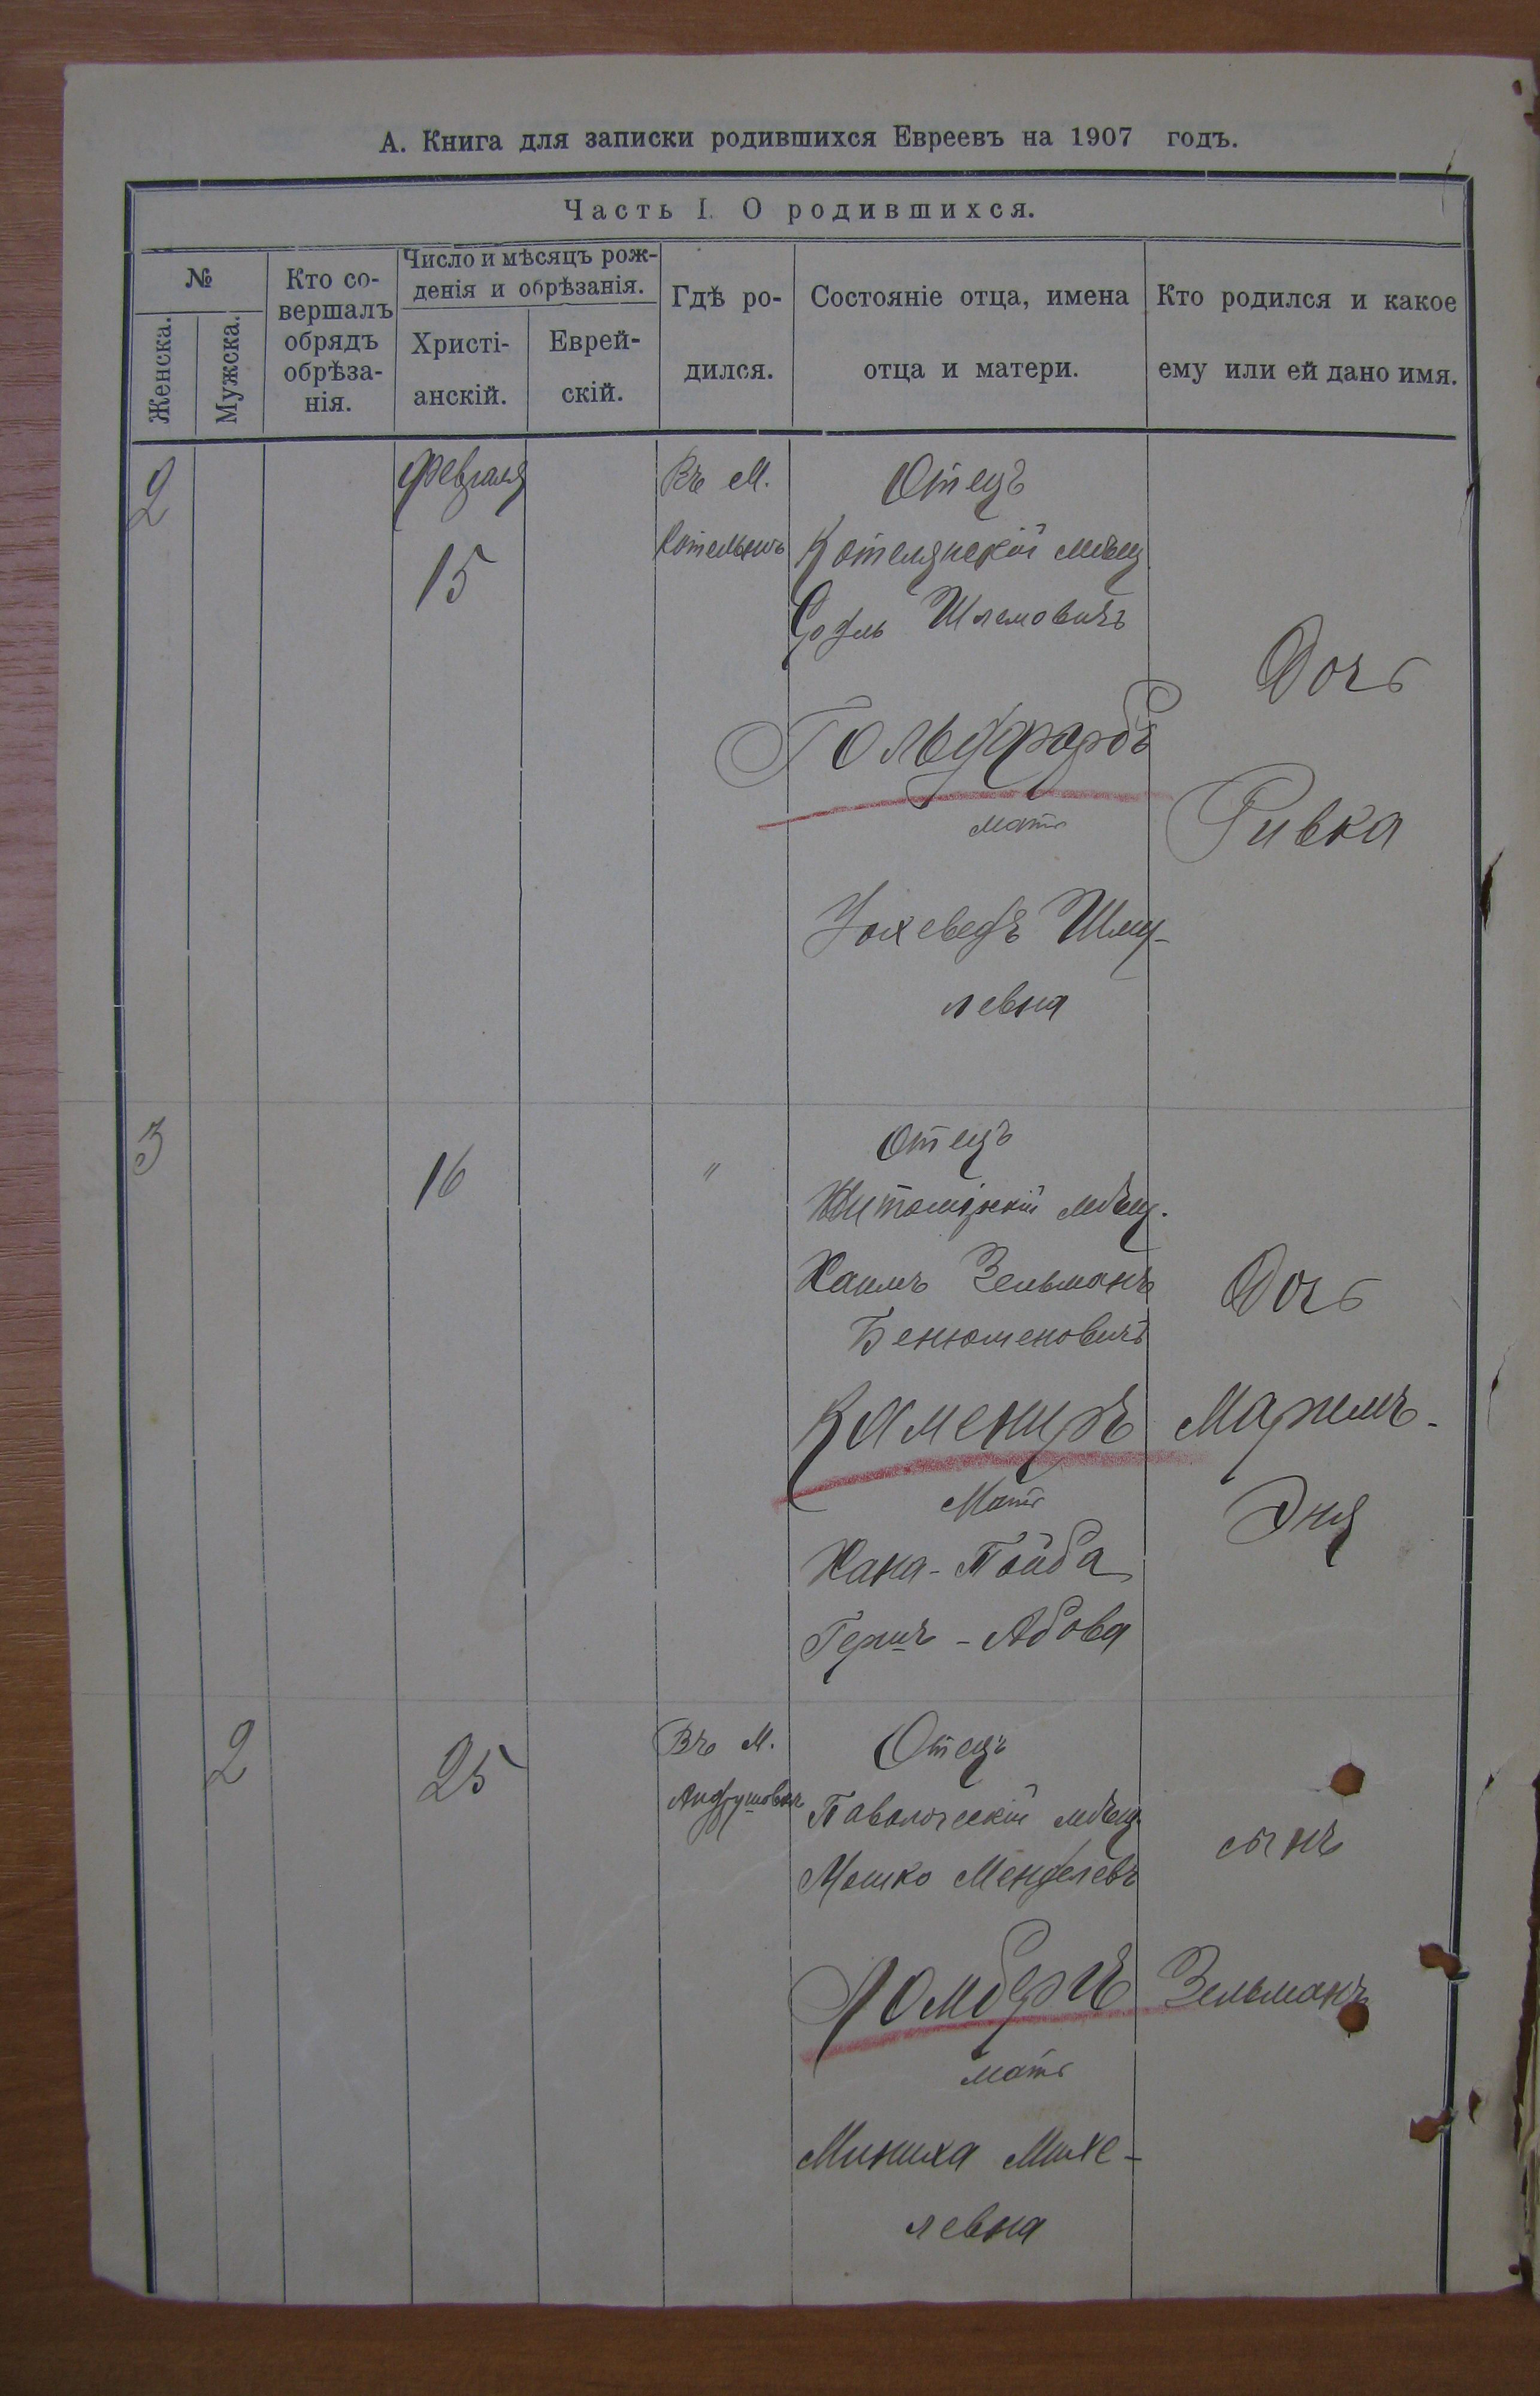 А. Книга для записки родившихся Евреевъ на 1907 годъ.
Часть I. О родившихся.
№
Женска.
Мужска.
Кто со-
вершалъ
обрядъ
обрѣза-
нія.
Число и мѣсяцъ рож-
денія и обрѣзанія.
Христі-
анскій.
Еврей-
скій.
Гдѣ ро-
дился.
Состояніе отца, имена
отца и матери.
Кто родился и какое
ему или ей дано имя.
2
Февраля
15
Въ М.
Котельнѣ
Отецъ
Котелянскій мѣщ.
Шлемовичъ
Гольдфарбъ
мать
Іохеведъ Шму-
левна
Дочь
Ривка
3
16
"
Отецъ
Житомірскій мѣщ.
Хаимъ Зельманъ
Бенюменовичъ
Камениръ
Мать
Хана-Тойба
Герш-Абова
Дочь
Марьемъ-
Эня
2
25
Въ М.
Андрушовкѣ
Отецъ
Паволочскій мѣщ.
Мошко Менделевъ
Ломбергъ
мать
Миниха Михе-
левна
сынъ
Зельманъ